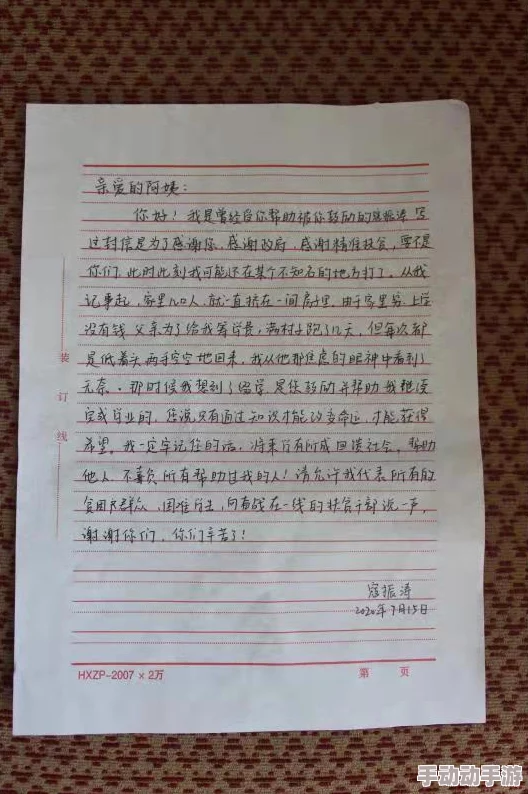 亲爱的阿姨：
你好！我是曾经你帮助被你鼓励的寇振涛 写
这封信是为了感谢您、感谢政府、感谢精准扶贫，要不是
你们，此时此刻我可能还在某个不知名的地方打工。从我
记事起，家里几口人，就一直挤在一间房子里，由于家里穷，上学
没有钱 父亲为了给我筹学费，满村子跑了几天，但每次都
是低着头两手空空地回来，我从他那焦虑的眼神中看到了
无奈。那时候我想到了辍学 是你鼓励并帮助我
完成学业的，您说只有通过知识才能改变命运，才能获得
希望。我一定牢记您的话，将来学有所成回馈社会，帮助
他人，不辜负所有帮助过我的人！请允许我代表所有的
贫困户群众、困难学生，向奋战在一线的扶贫干部说一声，
谢谢你们，你们辛苦了！
寇振涛
2020年7月15日
装
订
线
HXZP-2007×2万
第 页
手动动手游